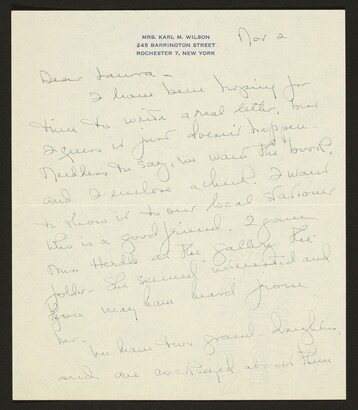 MRS. KARL M. WILSON
245 BARRINGTON STREET
ROCHESTER 7, NEW YORK
Nov 2
Dear Laura -
I have been hoping for
time to write a real letter, but
I guess it just doesn't happen.
Needless to say, we want the book,
and I enclose a check. I want
to show it to our local stationer
who is a good friend. I gave
Miss Herdle at the Gallery the
folder - She seemed interested and
you may have heard from
her -
We have two grand-daughters,
and are cockeyed about them